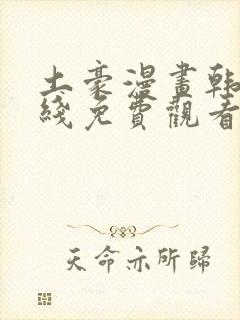 土豪漫畫韩
綫免費觀看
天命亦所歸